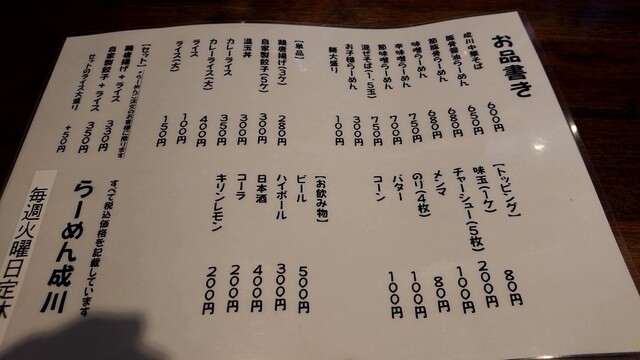 お品書き
成川中華そば 600円
豚骨醤油らーめん 650円
節豚骨らーめん 680円
味噌らーめん 680円
辛味噌らーめん 700円
節味噌らーめん 750円
混ぜそば(1.5玉) 750円
お子様らーめん 300円
麺大盛り 100円
【トッピング】
味玉(1ケ) 80円
チャーシュー(5枚) 200円
メンマ 100円
のり(4枚) 80円
バター 100円
コーン 100円
【単品】
鶏唐揚げ(3ケ) 280円
自家製餃子(5ケ) 300円
温玉丼 300円
カレーライス 350円
カレーライス(大) 400円
ライス 100円
ライス(大) 150円
【お飲み物】
ビール 500円
ハイボール 300円
日本酒 400円
コーラ 200円
キリンレモン 200円
【セット】 *らーめんご注文のお客様に限ります
鶏唐揚げ+ライス 330円
自家製餃子+ライス 350円
セットのライス大盛り +50円
すべて税込価格を記載しています
らーめん成川
毎週火曜日定休